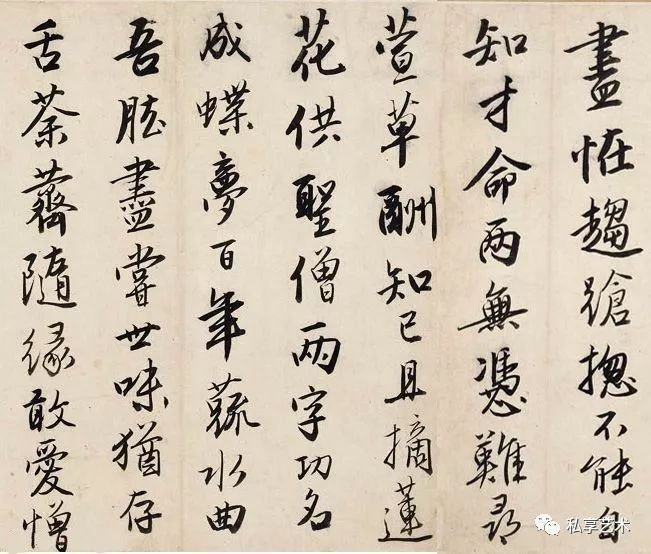 盡怪趨蹌揔不能自
知才命兩無憑難尋
萱草酬知己且摘蓮
花供聖僧兩字功名
成蝶夢百年蔬水曲
吾肱盡嘗世味猶存
舌荼薺隨緣敢愛憎
私享艺术